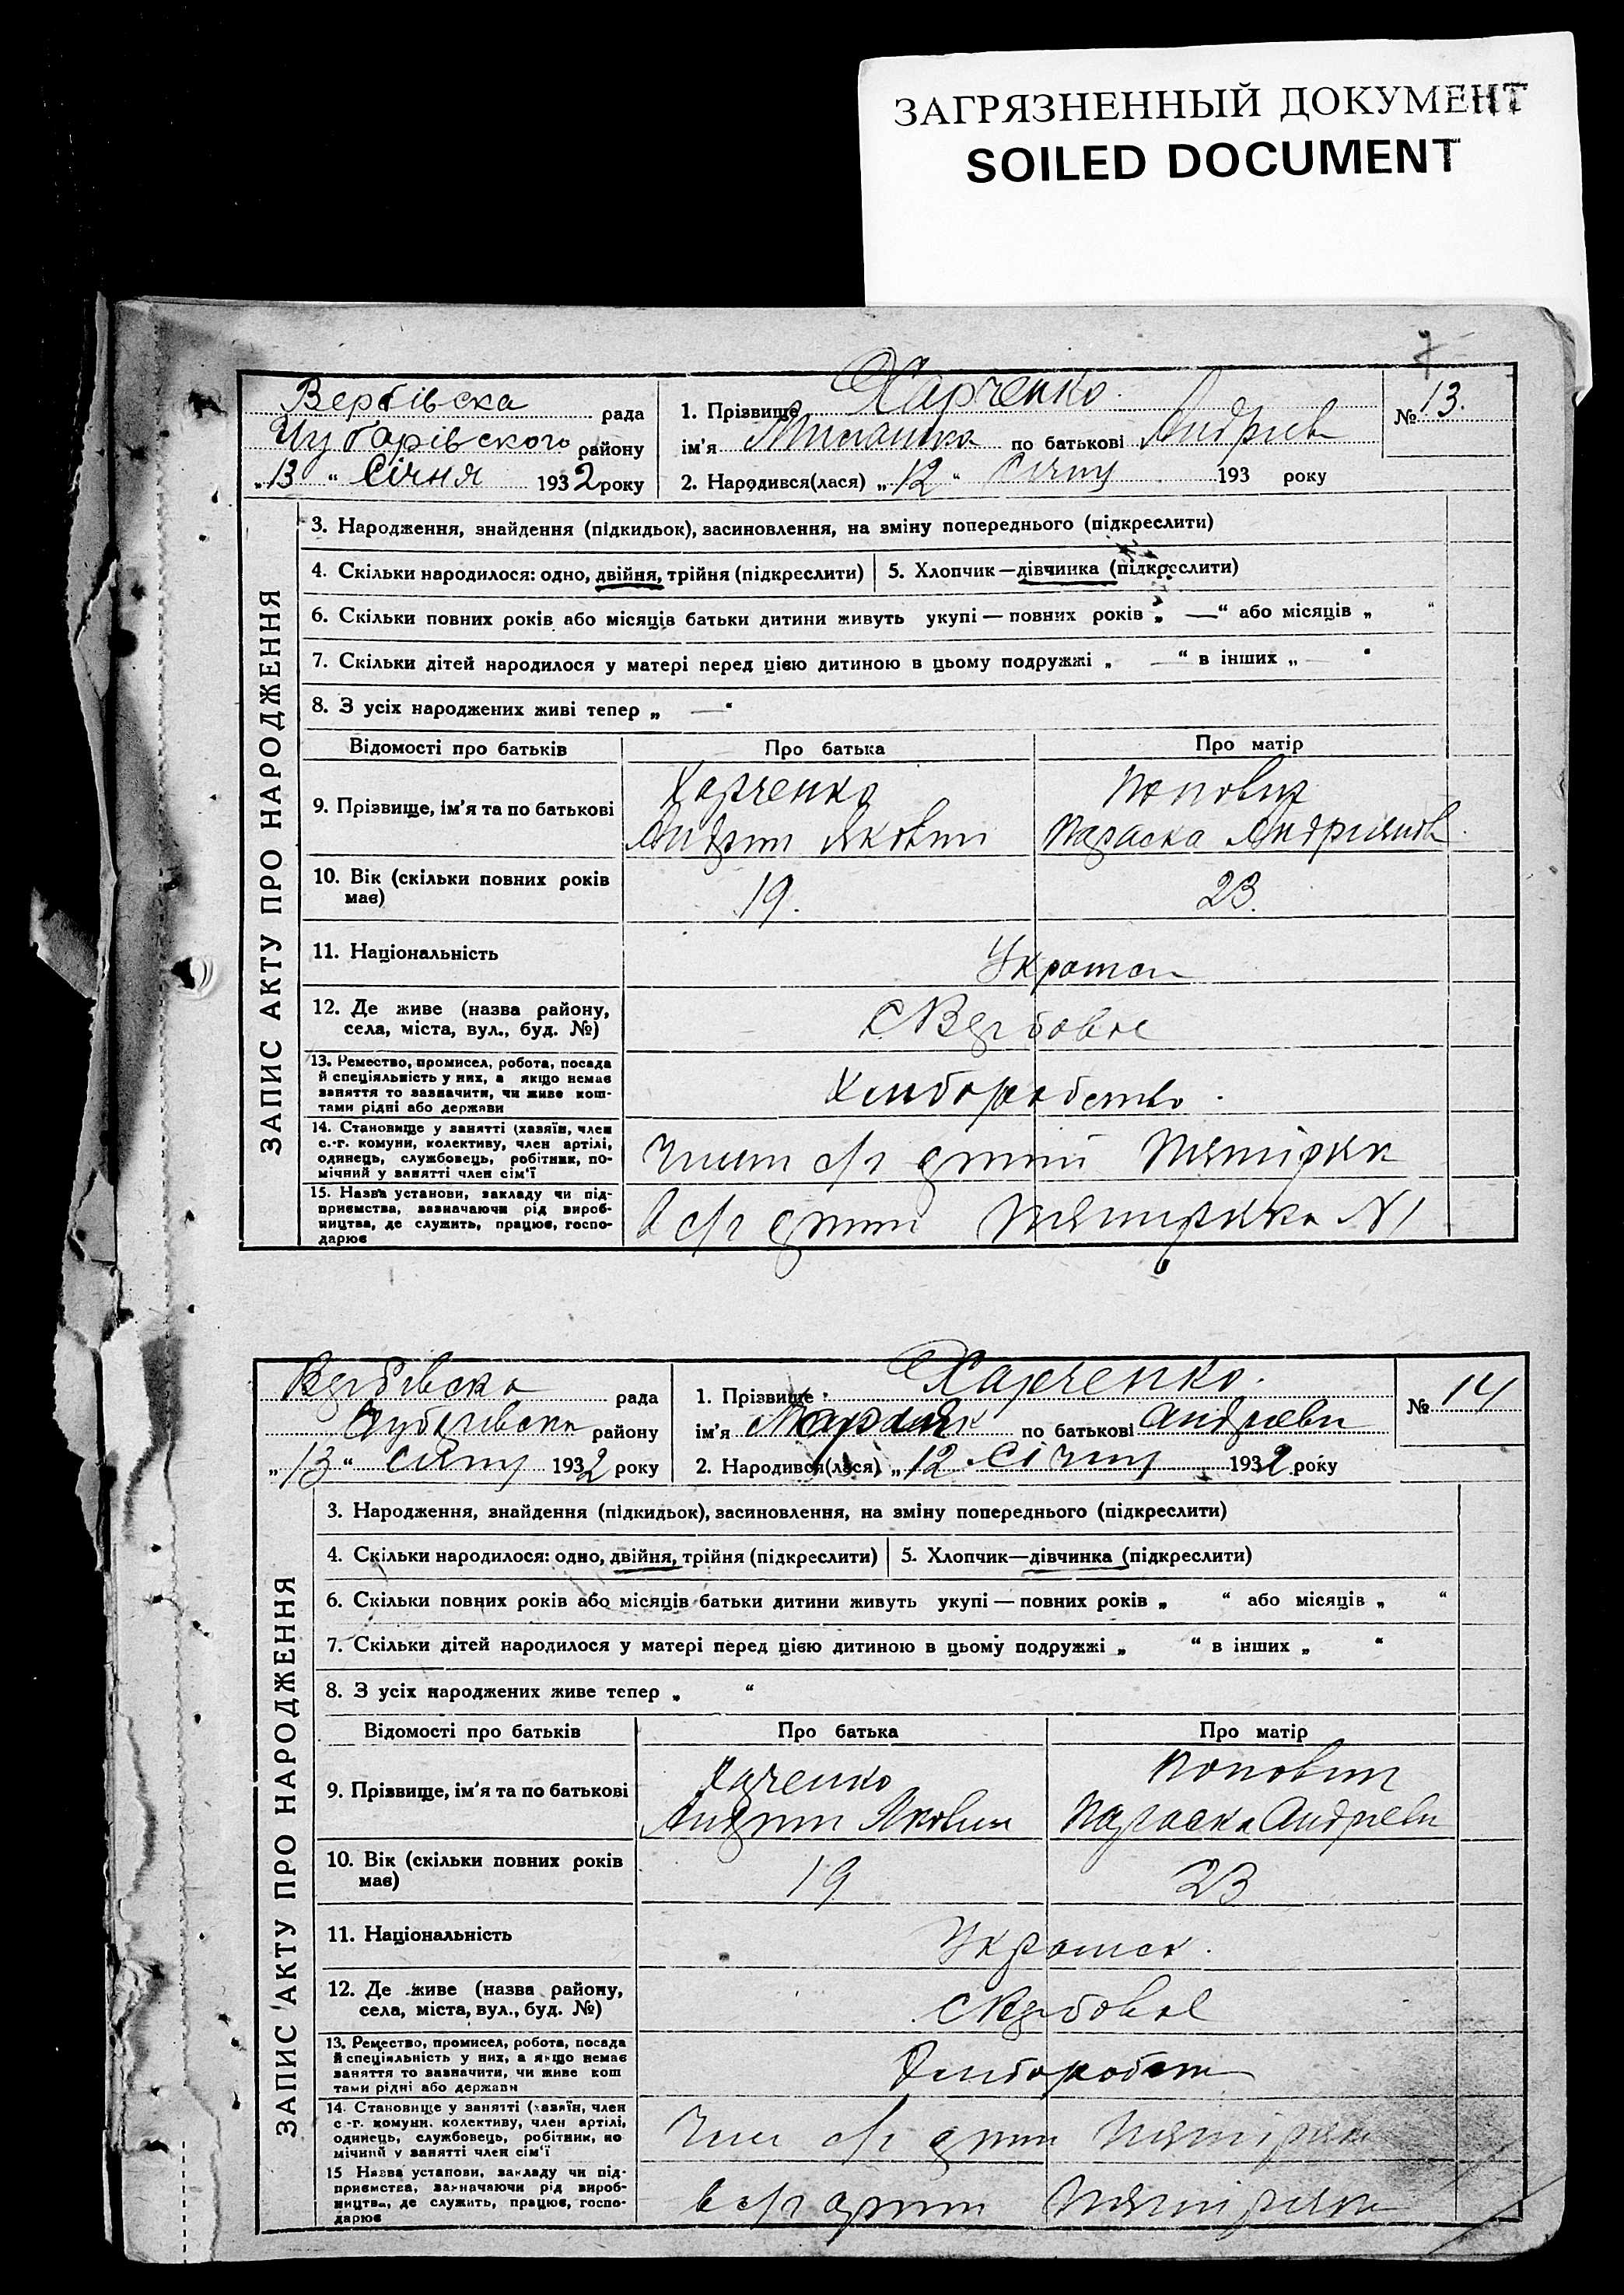 ЗАГРЯЗНЕННЫЙ ДОКУМЕНТ
SOILED DOCUMENT
7
ЗАПИС АКТУ ПРО НАРОДЖЕННЯ
Вербівска рада
Чубарівского районy
„13“ Січня 1932 року
1. Прізвище Харченко
ім’я по батькові Андріев
2. Народився(лася) „12“ Січня 193 року
№ 13.
3. Народження, знайдення (підкидьок), засиновлення, на зміну попереднього (підкреслити)
4. Скільки народилося: одно, двійня, трійня (підкреслити) 5. Хлопчик—дівчинка (підкреслити)
6. Скільки повних років або місяців батьки дитини живуть укупі — повних років „ —“ або місяців „ “
7. Скільки дітей народилося у матері перед цією дитиною в цьому подружжі „ —“ в інших „ — “
8. З усіх народжених живі тепер „ —“
Відомості про батьків Про батька Про матір
9. Прізвище, ім’я та по батькові
Харченко Попович
Андрій Якович Параска
10. Вік (скільки повних років має)
19. 23.
11. Національність
12. Де живе (назва району, села, міста, вул., буд. №)
С Вербовое
13. Ремество, промисел, робота, посада
й спеціяльність у них, а якщо немає
заняття то зазначити, чи живе кош-
тами рідні або держави
Хлиборобство.
14. Становище у занятті (хазяїн, член
с.-г. комуни, колективу, член артілі,
одинець, службовець, робітник, по-
мічний у занятті член сім’ї
Член с/г
15. Назва установи, закладу чи під-
приємства, зазначаючи рід вироб-
ництва, де служить, працює, госпо-
дарює
В с/г N1
ЗАПИС АКТУ ПРО НАРОДЖЕННЯ
Вербівска рада
районy
„13“ Січня 1932 року
1. Прізвище Харченко.
ім’я по батькові Андріевн
2. Народився(лася) „12“ Січня 1932 року
№ 14
3. Народження, знайдення (підкидьок), засиновлення, на зміну попереднього (підкреслити)
4. Скільки народилося: одно, двійня, трійня (підкреслити) 5. Хлопчик—дівчинка (підкреслити)
6. Скільки повних років або місяців батьки дитини живуть укупі — повних років „ “ або місяців „ “
7. Скільки дітей народилося у матері перед цією дитиною в цьому подружжі „ “ в інших „ “
8. З усіх народжених живе тепер „ “
Відомості про батьків Про батька Про матір
9. Прізвище, ім’я та по батькові
Харченко Попович
Андрій Якович Параска Андріевн
10. Вік (скільки повних років має)
19 23
11. Національність
12. Де живе (назва району, села, міста, вул., буд. №)
С Вербовое
13. Ремество, промисел, робота, посада
й спеціяльність у них, а якщо немає
заняття то зазначити, чи живе кош
тами рідні або держави
14. Становище у занятті (хазяїн, член
с.-г. комуни, колективу, член артілі,
одинець, службовець, робітник, по
мічний у занятті член сім’ї
Член с/г
15 Назва установи, закладу чи під-
приємства, зазначаючи рід вироб-
ництва, де служить, працює, госпо-
дарює
в с/г